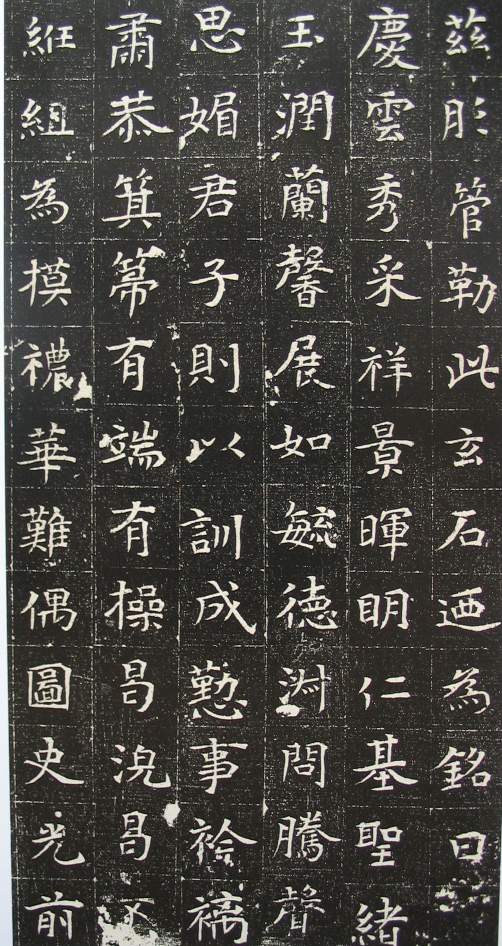 茲彤管勒此玄石迺為銘曰
慶雲秀采祥景暉明仁基聖緒
玉潤蘭馨展如毓德淑問騰聲
思媚君子則以訓成懃事衿褵
肅恭箕箒有端有操曷浼曷
紝組為模禯華難偶圖史光前